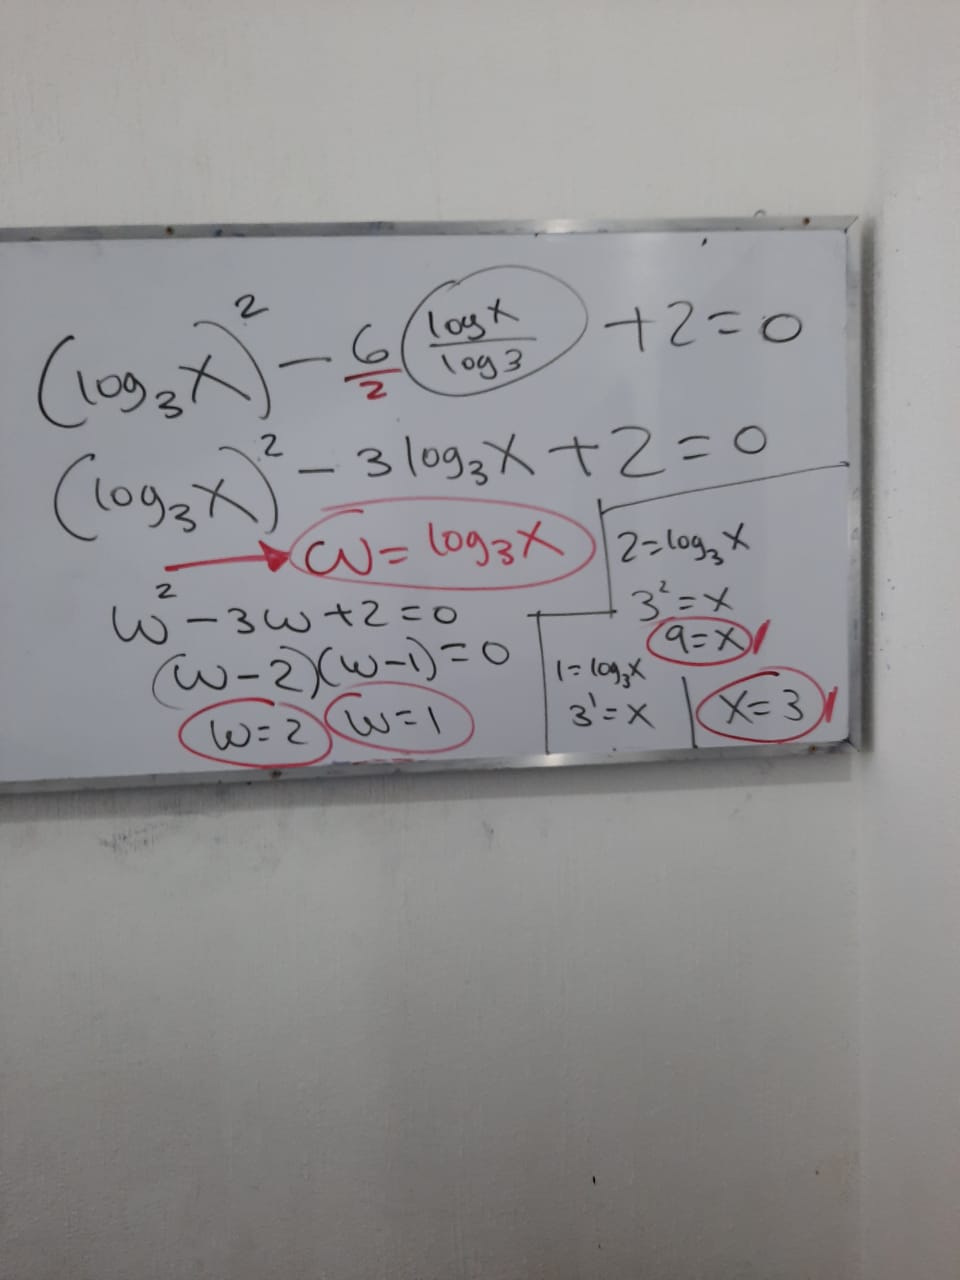 (log₃X)² - 6/2 (logX/log3) +2=0
(log₃X)² - 3log₃X+2=0
W=log₃X
W²-3W+2=0
(W-2)(W-1)=0
W=2 W=1
2=log₃X
3²=X
9=X
1=log₃X
3¹=X
X=3